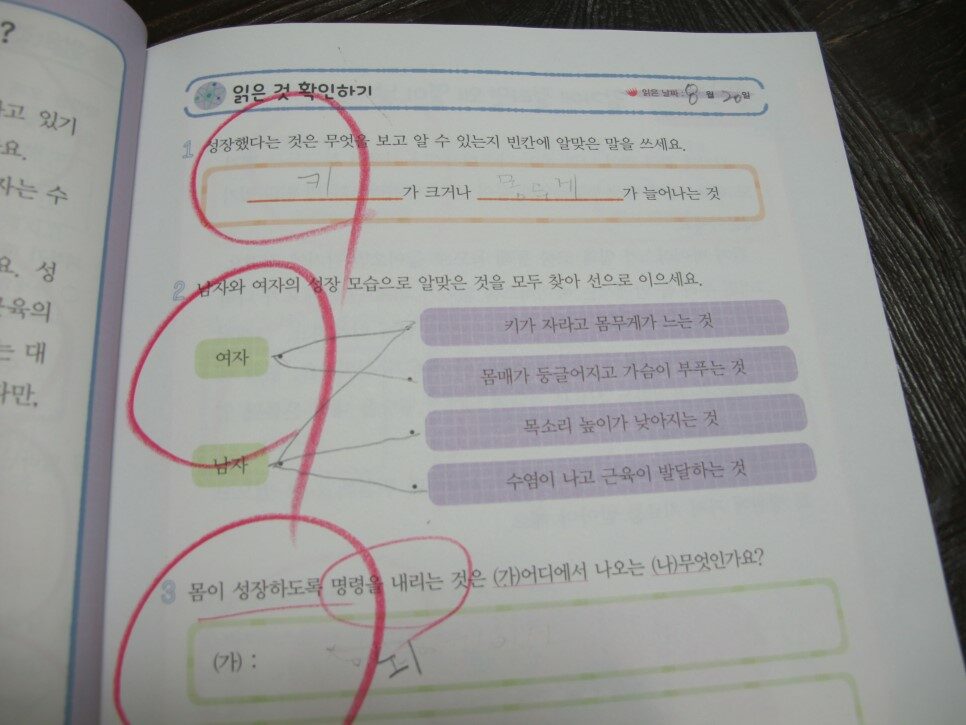 ?
고 있기
요.
자는 수
요. 성
근육의
는 대
다만,
읽은 것 확인하기
읽은 날짜 : 8 월 20 일
1 성장했다는 것은 무엇을 보고 알 수 있는지 빈칸에 알맞은 말을 쓰세요.
키 가 크거나 몸무게 가 늘어나는 것
2 남자와 여자의 성장 모습으로 알맞은 것을 모두 찾아 선으로 이으세요.
키가 자라고 몸무게가 느는 것
여자
몸매가 둥글어지고 가슴이 부푸는 것
목소리 높이가 낮아지는 것
남자
수염이 나고 근육이 발달하는 것
3 몸이 성장하도록 명령을 내리는 것은 (가)어디에서 나오는 (나)무엇인가요?
(가) :